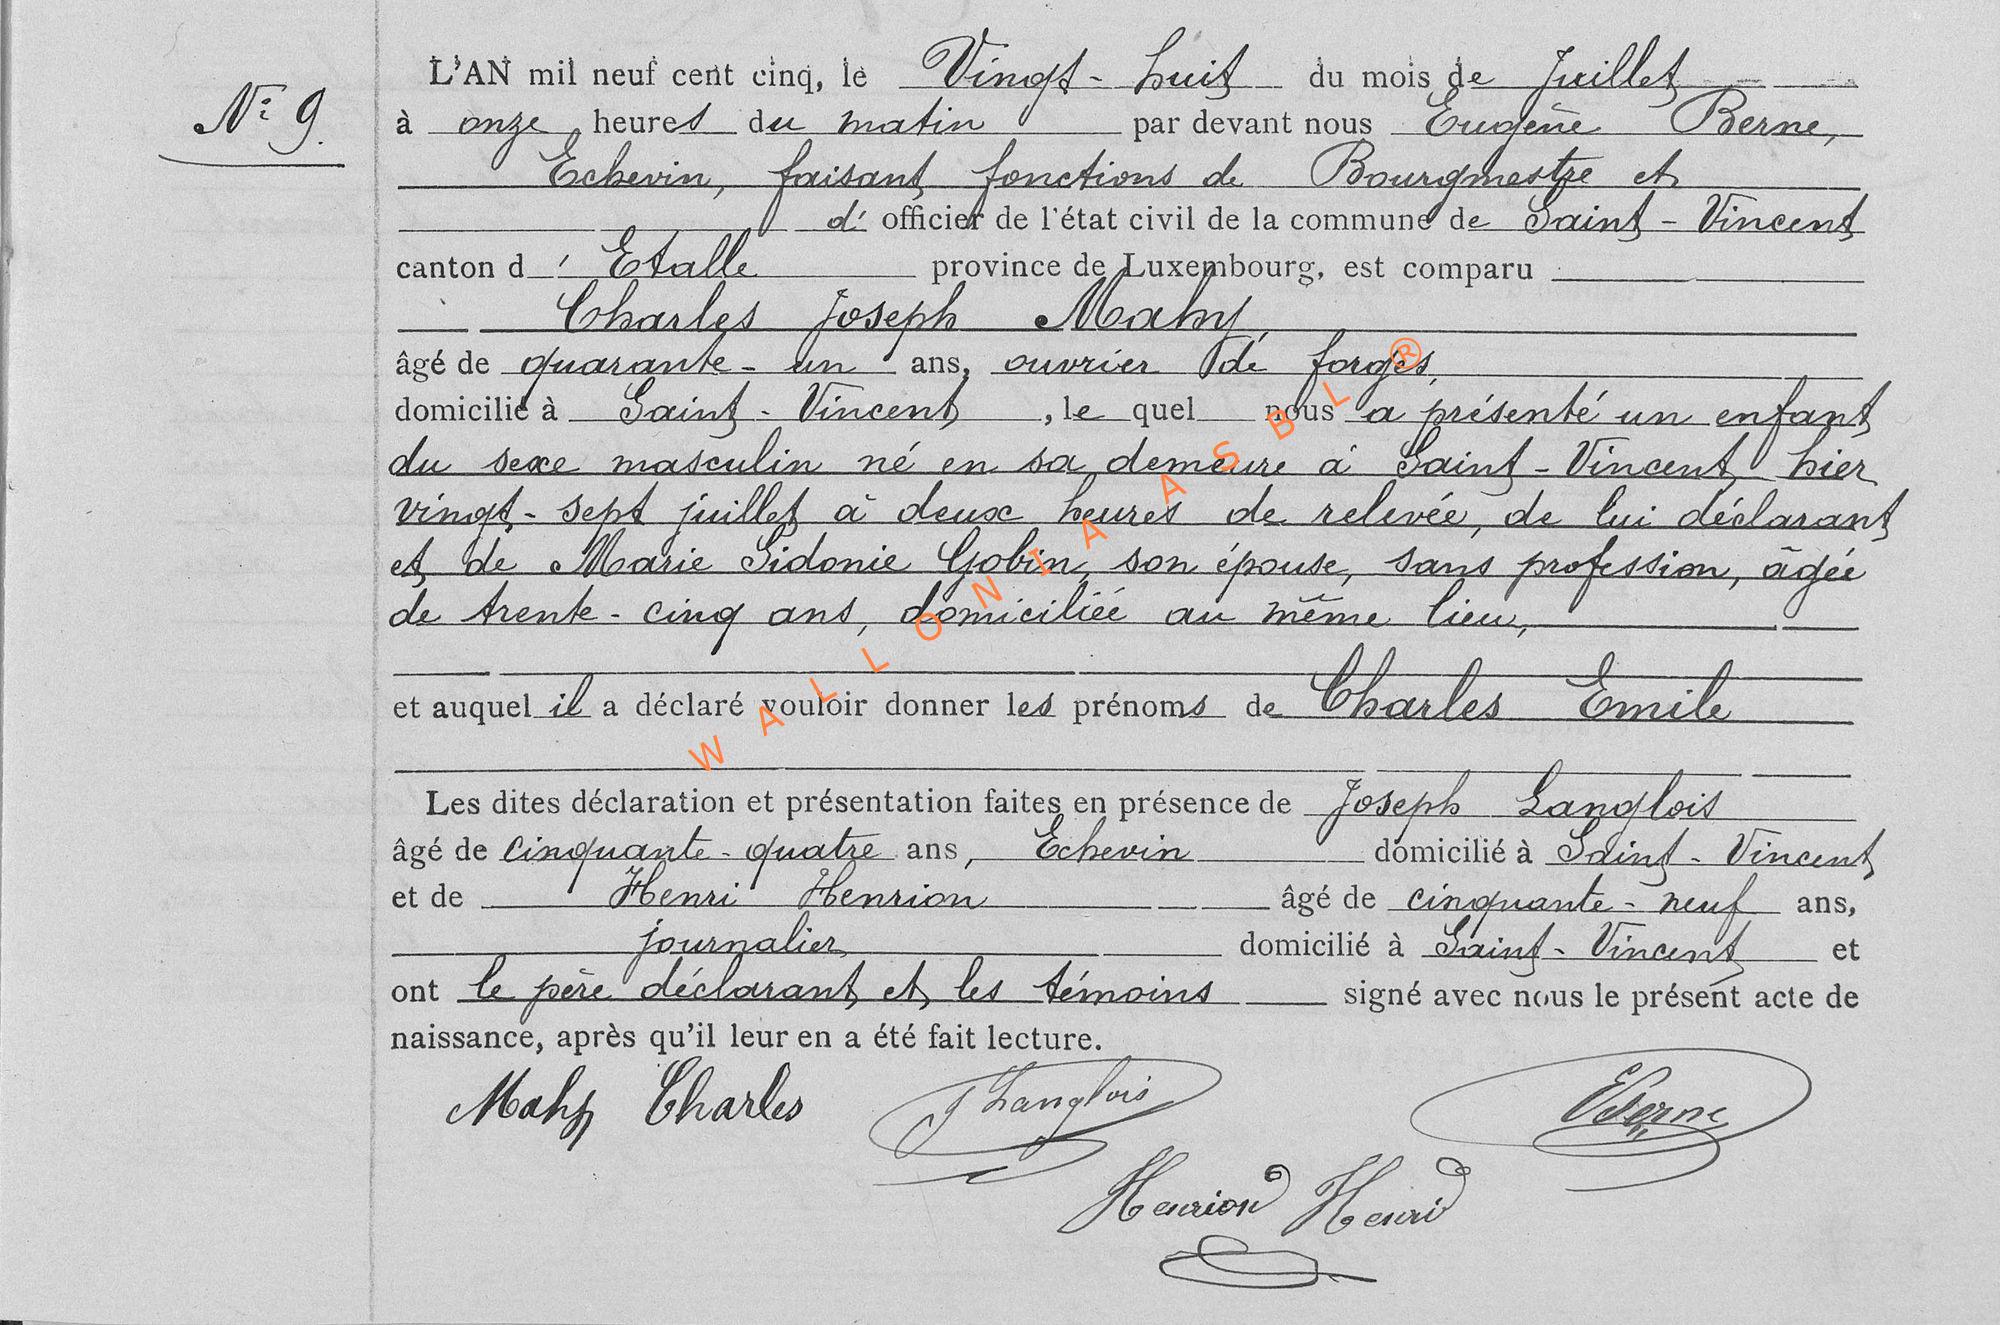 N° 9
L'AN mil neuf cent cinq, le Vingt-huit du mois de Juillet
à onze heures du matin par devant nous Eugène Berne,
Echevin, faisant fonctions de Bourgmestre et
d' officier de l'état civil de la commune de Saint-Vincent
canton d' Etalle province de Luxembourg, est comparu
Charles Joseph Mahy,
âgé de quarante-un ans, ouvrier de forges,
domicilié à Saint-Vincent, le quel nous a présenté un enfant
du sexe masculin né en sa demeure à Saint-Vincent hier
vingt-sept juillet à deux heures de relevée, de lui déclarant
et de Marie Sidonie Gobin, son épouse, sans profession, âgée
de trente-cinq ans, domiciliée au même lieu,
et auquel il a déclaré vouloir donner les prénoms de Charles Emile
Les dites déclaration et présentation faites en présence de Joseph Langlois
âgé de cinquante-quatre ans, Echevin domicilié à Saint-Vincent
et de Henri Henrion âgé de cinquante-neuf ans,
journalier domicilié à Saint-Vincent et
ont le père déclarant et les témoins signé avec nous le présent acte de
naissance, après qu'il leur en a été fait lecture.
Mahy Charles J Langlois EBerne
Henrion Henri
WALLONIA ASBL ®